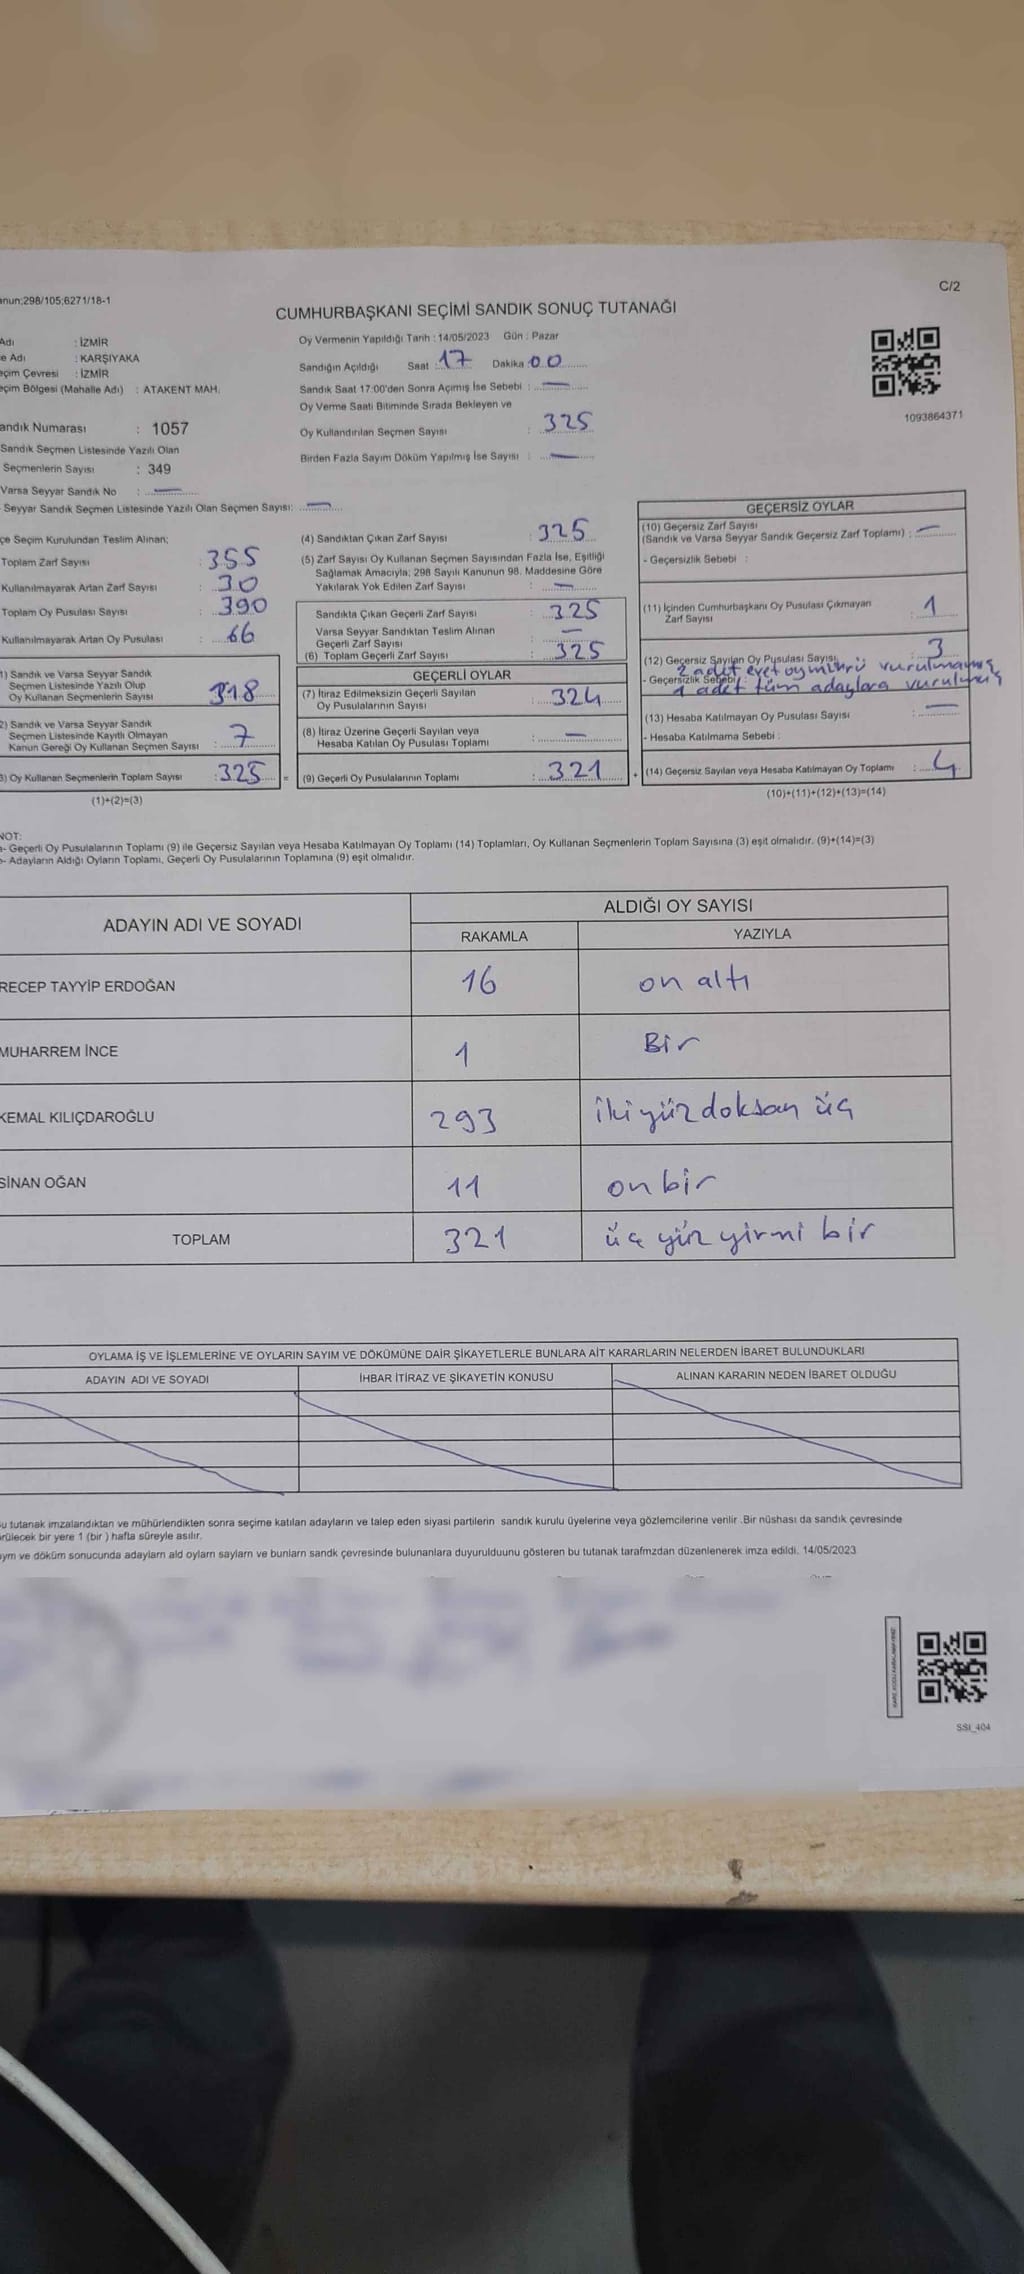 anun;298/105;6271/18-1
C/2
CUMHURBAŞKANI SEÇİMİ SANDIK SONUÇ TUTANAĞI
Adı : İZMİR
e Adı : KARŞIYAKA
eçim Çevresi : İZMİR
eçim Bölgesi (Mahalle Adı) : ATAKENT MAH.
andık Numarası : 1057
Sandık Seçmen Listesinde Yazılı Olan
Seçmenlerin Sayısı : 349
Varsa Seyyar Sandık No : —
Seyyar Sandık Seçmen Listesinde Yazılı Olan Seçmen Sayısı: —
Oy Vermenin Yapıldığı Tarih : 14/05/2023 Gün : Pazar
Sandığın Açıldığı Saat : 17 Dakika : 00
Sandık Saat 17:00'den Sonra Açımış İse Sebebi : —
Oy Verme Saati Bitiminde Sırada Bekleyen ve
Oy Kullandırılan Seçmen Sayısı : 325
Birden Fazla Sayım Döküm Yapılmış İse Sayısı : —
1093864371
çe Seçim Kurulundan Teslim Alınan;
Toplam Zarf Sayısı : 355
Kullanılmayarak Artan Zarf Sayısı : 30
Toplam Oy Pusulası Sayısı : 390
Kullanılmayarak Artan Oy Pusulası : 66
1) Sandık ve Varsa Seyyar Sandık
Seçmen Listesinde Yazılı Olup
Oy Kullanan Seçmenlerin Sayısı : 318
2) Sandık ve Varsa Seyyar Sandık
Seçmen Listesinde Kayıtlı Olmayan
Kanun Gereği Oy Kullanan Seçmen Sayısı : 7
3) Oy Kullanan Seçmenlerin Toplam Sayısı : 325 =
(1)+(2)=(3)
(4) Sandıktan Çıkan Zarf Sayısı : 325
(5) Zarf Sayısı Oy Kullanan Seçmen Sayısından Fazla İse, Eşitliği
Sağlamak Amacıyla; 298 Sayılı Kanunun 98. Maddesine Göre
Yakılarak Yok Edilen Zarf Sayısı : —
Sandıkta Çıkan Geçerli Zarf Sayısı : 325
Varsa Seyyar Sandıktan Teslim Alınan
Geçerli Zarf Sayısı : —
(6) Toplam Geçerli Zarf Sayısı : 325
GEÇERLİ OYLAR
(7) İtiraz Edilmeksizin Geçerli Sayılan
Oy Pusulalarının Sayısı : 324
(8) İtiraz Üzerine Geçerli Sayılan veya
Hesaba Katılan Oy Pusulası Toplamı : —
(9) Geçerli Oy Pusulalarının Toplamı : 321 +
GEÇERSİZ OYLAR
(10) Geçersiz Zarf Sayısı
(Sandık ve Varsa Seyyar Sandık Geçersiz Zarf Toplamı) : —
- Geçersizlik Sebebi :
(11) İçinden Cumhurbaşkanı Oy Pusulası Çıkmayan
Zarf Sayısı : 1
(12) Geçersiz Sayılan Oy Pusulası Sayısı : 3
2 adet evet oy mührü vurulmamış
- Geçersizlik Sebebi : 1 adet tüm adaylara vurulmuş
(13) Hesaba Katılmayan Oy Pusulası Sayısı : —
- Hesaba Katılmama Sebebi :
(14) Geçersiz Sayılan veya Hesaba Katılmayan Oy Toplamı : 4
(10)+(11)+(12)+(13)=(14)
NOT:
a- Geçerli Oy Pusulalarının Toplamı (9) ile Geçersiz Sayılan veya Hesaba Katılmayan Oy Toplamı (14) Toplamları, Oy Kullanan Seçmenlerin Toplam Sayısına (3) eşit olmalıdır. (9)+(14)=(3)
- Adayların Aldığı Oyların Toplamı, Geçerli Oy Pusulalarının Toplamına (9) eşit olmalıdır.
ADAYIN ADI VE SOYADI
ALDIĞI OY SAYISI
RAKAMLA YAZIYLA
RECEP TAYYİP ERDOĞAN 16 on altı
MUHARREM İNCE 1 Bir
KEMAL KILIÇDAROĞLU 293 iki yüz doksan üç
SİNAN OĞAN 11 on bir
TOPLAM 321 üç yüz yirmi bir
OYLAMA İŞ VE İŞLEMLERİNE VE OYLARIN SAYIM VE DÖKÜMÜNE DAİR ŞİKAYETLERLE BUNLARA AİT KARARLARIN NELERDEN İBARET BULUNDUKLARI
ADAYIN ADI VE SOYADI İHBAR İTİRAZ VE ŞİKAYETİN KONUSU ALINAN KARARIN NEDEN İBARET OLDUĞU
u tutanak imzalandıktan ve mühürlendikten sonra seçime katılan adayların ve talep eden siyasi partilerin sandık kurulu üyelerine veya gözlemcilerine verilir .Bir nüshası da sandık çevresinde
rülecek bir yere 1 (bir ) hafta süreyle asılır.
ym ve döküm sonucunda adaylarn ald oylarn saylarn ve bunlarn sandk çevresinde bulunanlara duyurulduunu gösteren bu tutanak tarafmzdan düzenlenerek imza edildi. 14/05/2023
SSI_404